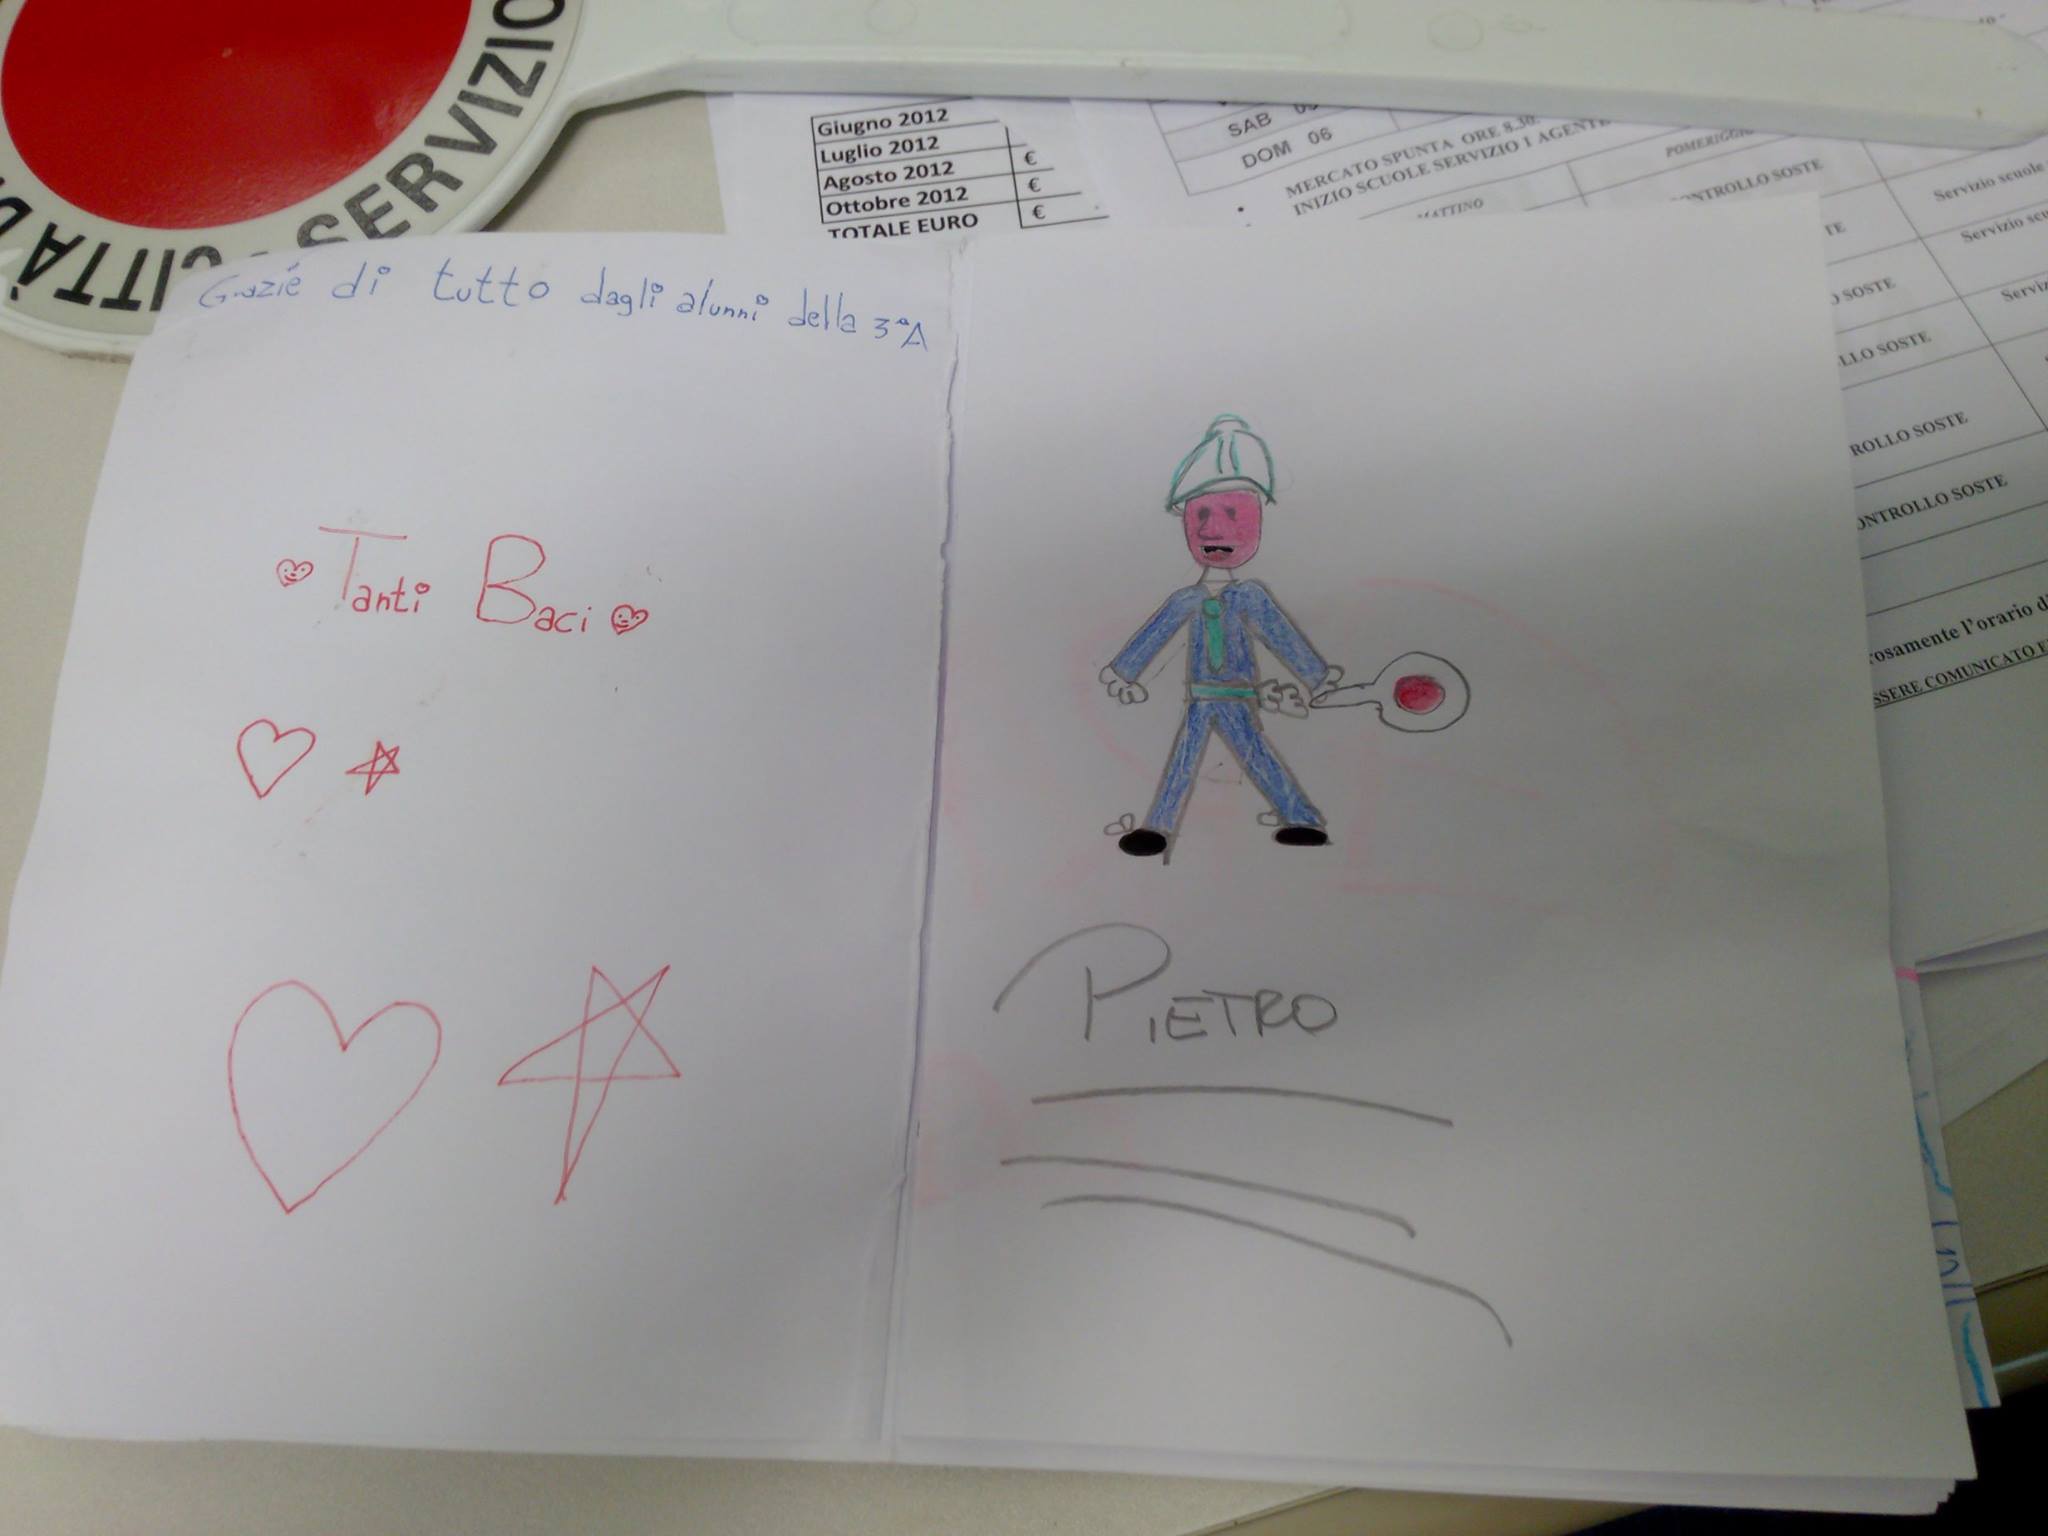 CITTÀ D
SERVIZIO
Giugno 2012
Luglio 2012 €
Agosto 2012 €
Ottobre 2012 €
TOTALE EURO
SAB
DOM 06
MERCATO SPUNTA ORE 8.30
INIZIO SCUOLE SERVIZIO 1 AGENTE
MATTINO
POMERIGGIO
CONTROLLO SOSTE
Servizio scuole
Servizio scu
SOSTE
LLO SOSTE
ROLLO SOSTE
ONTROLLO SOSTE
rosamente l'orario di
SSERE COMUNICATO E
Grazie di tutto dagli alunni della 3ªA
Tanti Baci
PIETRO